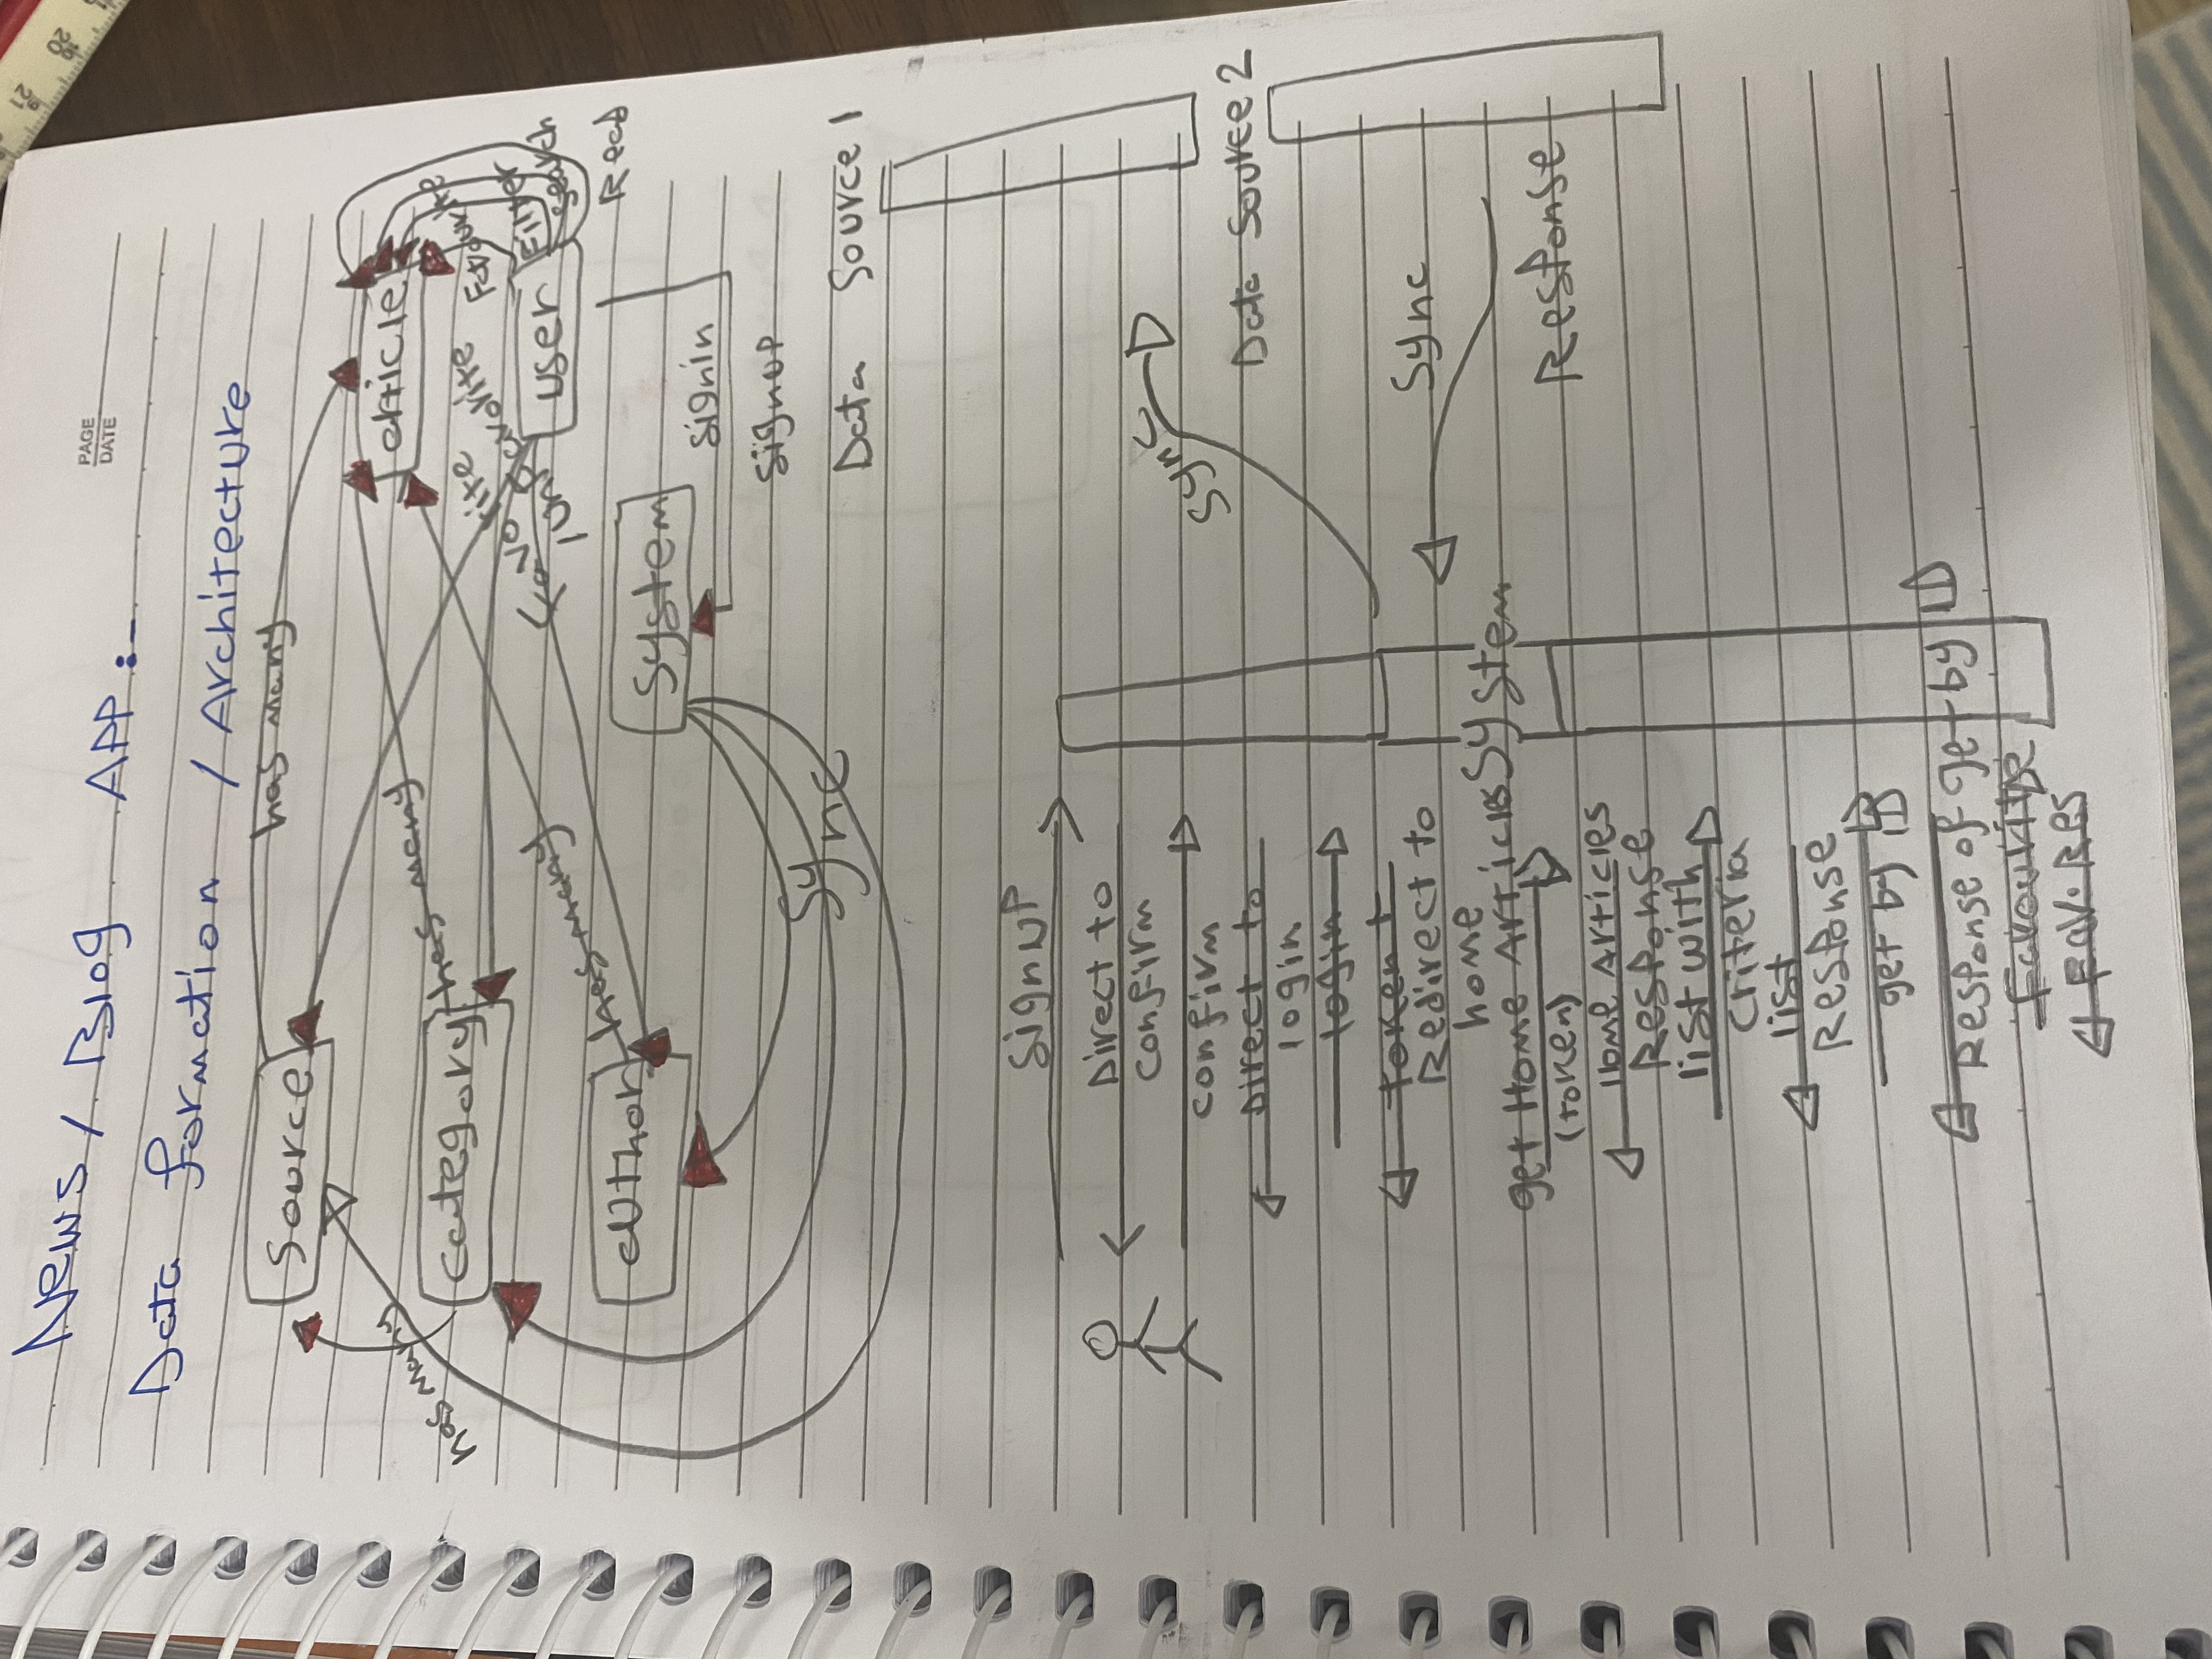 News / Blog APP :-
PAGE
DATE
Data formation / Architecture
Source
has many
article
has many
category
has many
Favourite
Favorite
/unfavorite
Filter
search
user
Read
author
has many
System
signin
signup
Sync
Data Source 1
SignUP
Direct to
confirm
confirm
Direct to
login
login
token +
Redirect to
home
get Home Articles
(token)
Home Articles
Response
list with
criteria
list
Response
get by ID
Response of get by ID
Favourite
Fav. Res
System
Sync
Data Source 2
Sync
Response
21
20